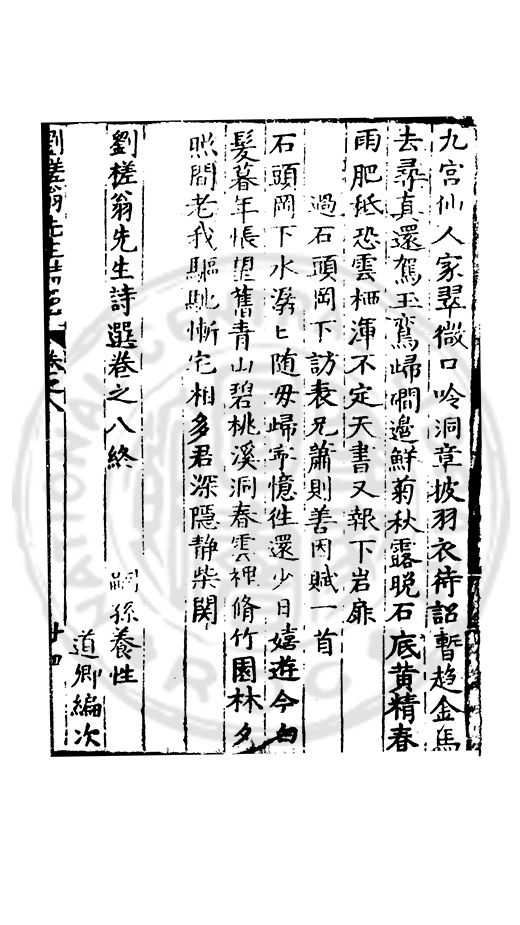 九宮仙人家翠微口吟洞章披羽衣待詔暫趨金馬
去尋真還駕玉鸞歸磵邉鮮菊秋露晚石底黃精春
雨肥秪恐雲栖渾不定天書又報下岩扉
過石頭岡下訪表兄蕭則善因賦一首
石頭岡下水潺匕随毋歸寧憶徃還少日嬉遊今白
髮暮年悵望舊青山碧桃溪洞春雲裡脩竹園林夕
照間老我驅馳慚宅相多君深隱静柴関
劉槎翁先生詩選卷之八終 嗣孫養性
道卿編次
劉槎翁先生詩選 卷之八 廿四